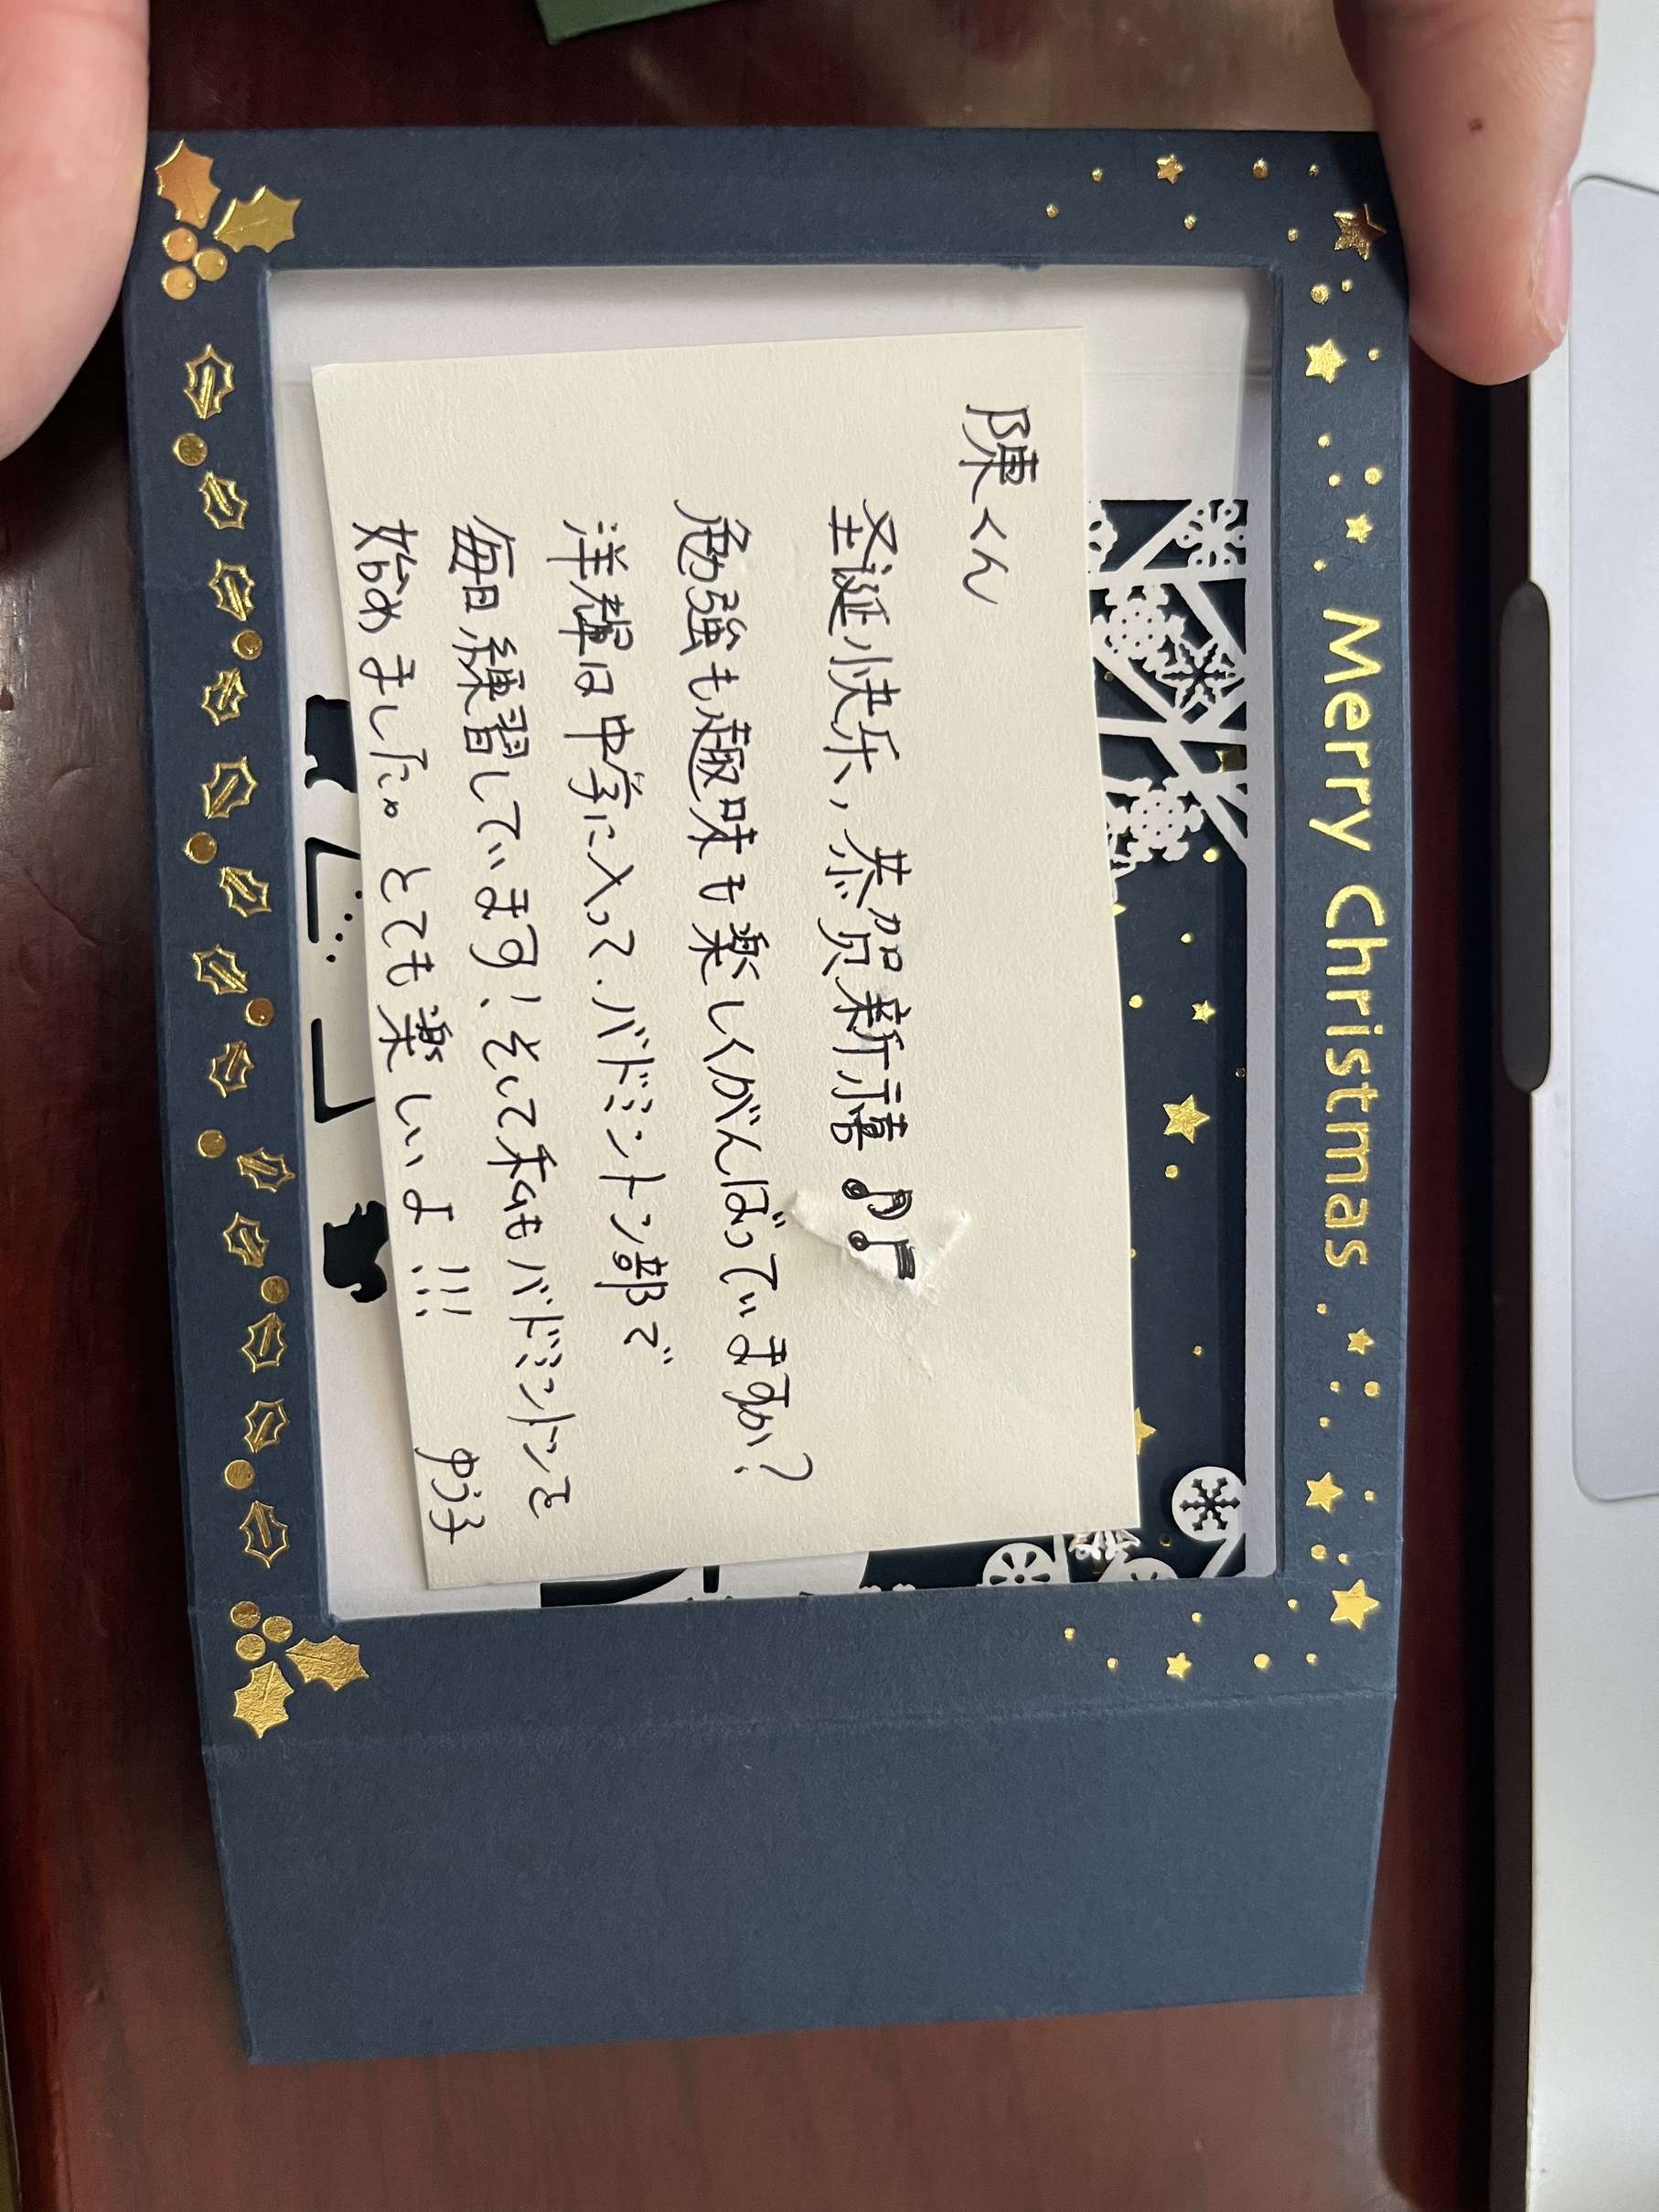 Merry Christmas
陳くん
圣诞快乐，恭贺新禧♪♫
勉強も趣味も楽しくがんばっていますか？
洋輝は中学に入って、バドミントン部で
毎日練習しています！そして私もバドミントンを
始めました。とても楽しいよ!!!
ゆう子